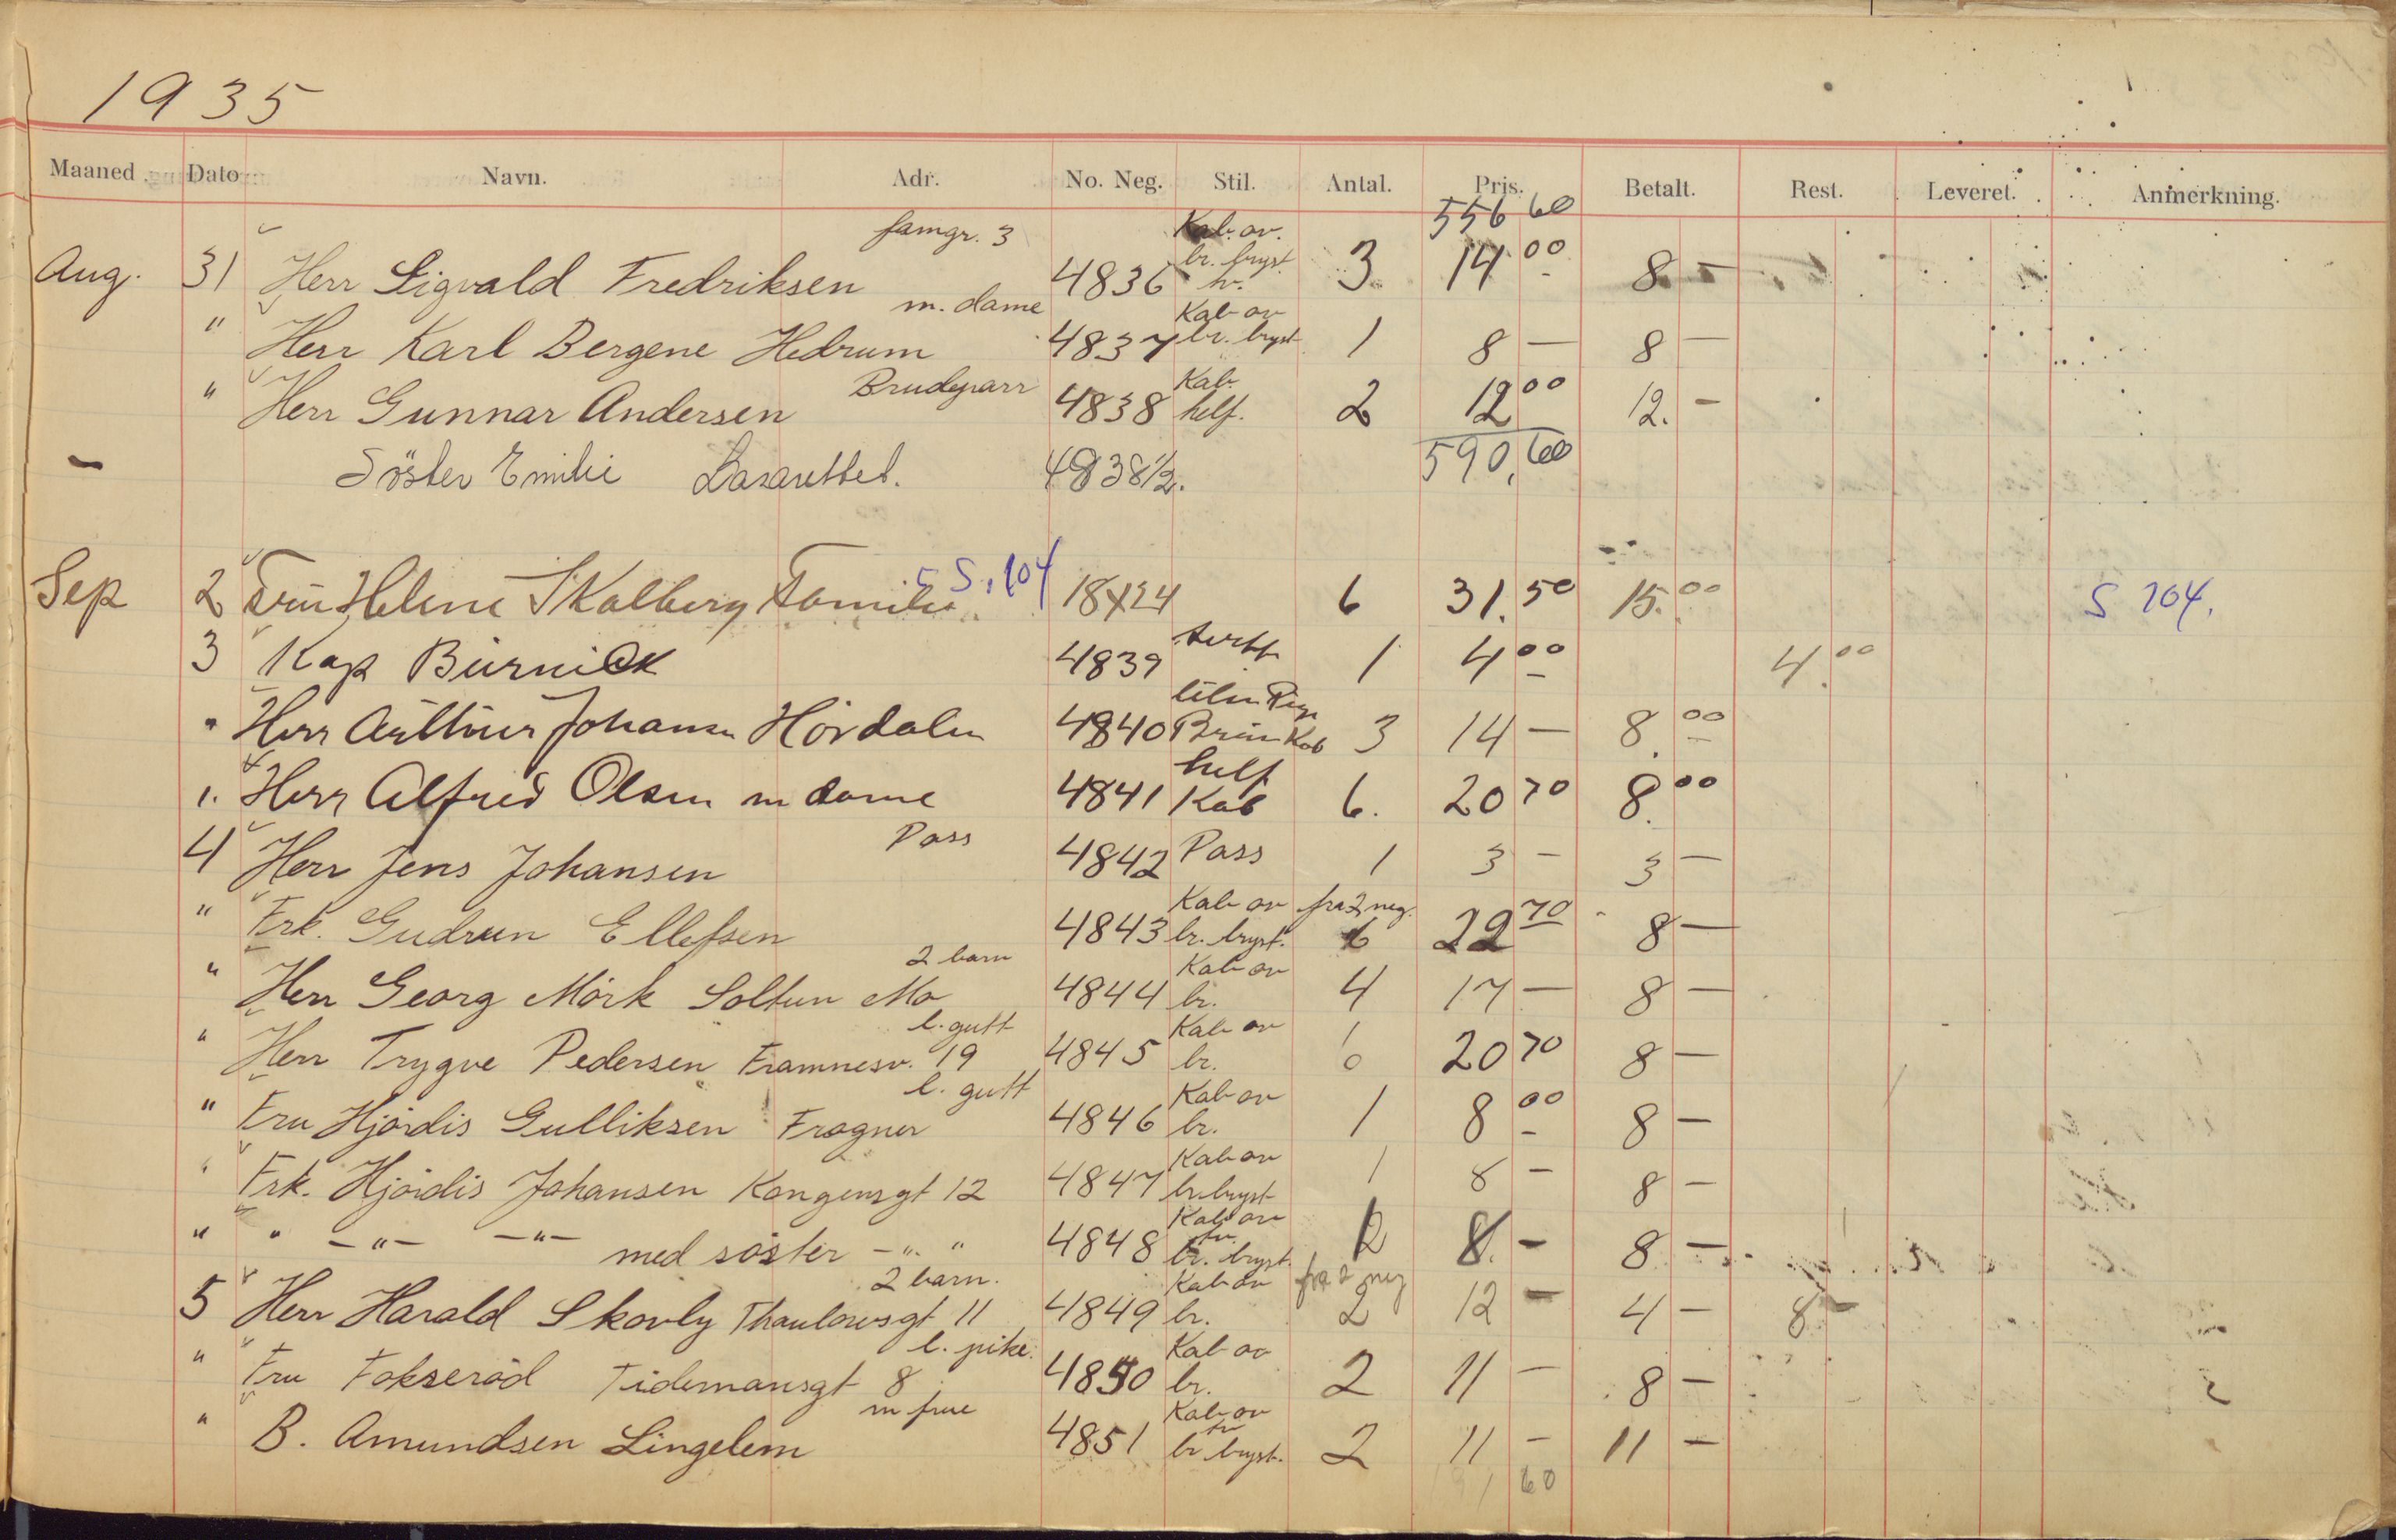 1935
Maaned Dato Navn. Adr. No. Neg. Stil. Antal. Pris. Betalt. Rest. Leveret. Anmerkning.
556 60
famgr. 3 Kab. ov.
Aug. 31 Herr Sigvald Fredriksen 4836 br. bryst. 3 14 00 8 -
m. dame Kab ov
" Herr Karl Bergene Hedrum 4837 br. bryst 1 8 - 8 -
Brudeparr Kab.
" Herr Gunnar Andersen 4838 helf. 2 12 00 12. -
Söster Emilie Lasarettet. 4838 1/2. 590,60
Sep 2 Fru Helene Skalberg Familie S. 104 18x24 6 31.50 15.00 S 104.
3 Kap Bürnick 4839 1 4 00 4.00
" Herr Arthur Johansen Hördalen 4840 Brün Kab 3 14 - 8.00
helf
" Herr Alfred Olsen m dame 4841 Kab 6. 20 70 8.00
Pass
4 Herr Jens Johansen 4842 Pass 1 3 - 3 -
Kab ov fra 2 neg.
" Frk. Gudrun Ellefsen 4843 br. bryst. 6 22 70 8 -
2 barn Kab ov
" Herr Georg Mörk Soltun Mo 4844 br. 4 17 - 8 -
l. gutt Kab ov
" Herr Trygve Pedersen Framnesv. 19 4845 br. 6 20 70 8 -
l. gutt Kab ov
" Fru Hjördis Gulliksen Fragner 4846 br. 1 8 00 8 -
Kab ov
" Frk. Hjördis Johansen Kongensgt 12 4847 br. bryst 1 8 - 8 -
Kab ov
" " -"- -"- med söster -"- " 4848 br. bryst. 2 8. - 8 -
2 barn. Kab ov fra 2 neg
5 Herr Harald Skovly Thaulowsgt 11 4849 br. 2 12 - 4 - 8 -
l. pike. Kab ov
" Fru Fokseröd Tidemansgt 8 4850 br. 2 11 - 8 -
m frue Kab ov
" B. Amundsen Lingelem 4851 br bryst. 2 11 - 11 -
191 60